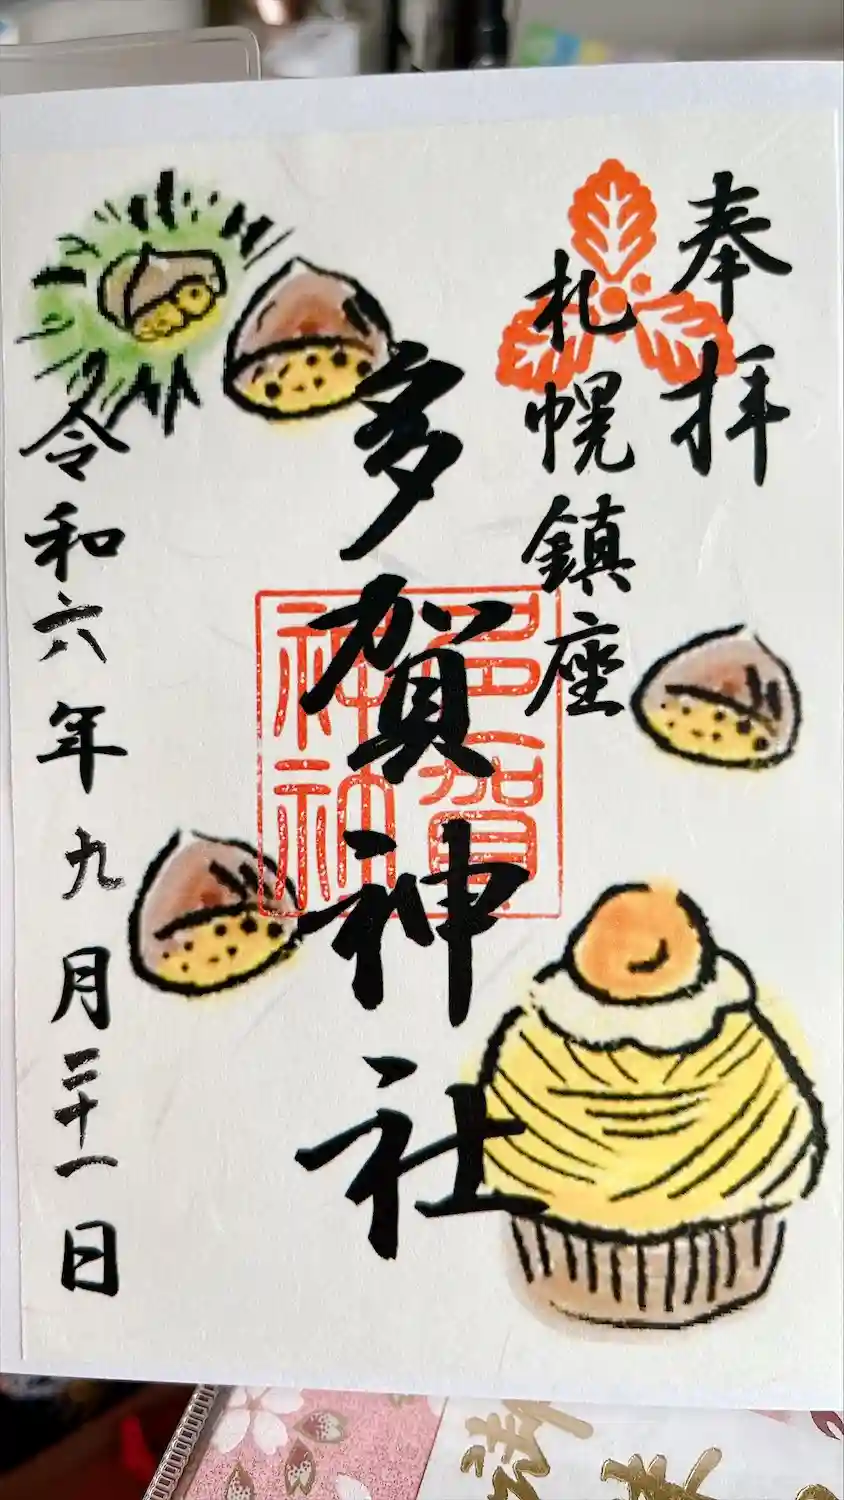 奉拝
札幌鎮座
多賀神社
多賀
神社
令和六年九月二十一日